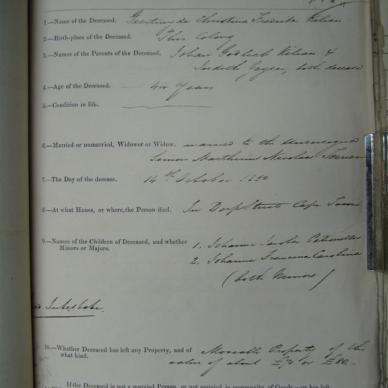 1.—Name of the Deceased. Geertruyda Christina Frederika Kilian
2.—Birth-place of the Deceased. This Colony
3.—Names of the Parents of the Deceased. Johan Godlieb Kilian &
Judith Geyer, both deceased
4.—Age of the Deceased. 44 Years
5.—Condition in life.
6.—Married or unmarried, Widower or Widow. married to the
Marthinus Nicolaas
7.—The Day of the decease. 14th October 1850
8.—At what House, or where, the Person died. In Dorp Street Cape Town
9.—Names of the Children of Deceased, and whether
Minors or Majors.
1. Johanna Petronella
2. Johanna Francina Carolina
(both Minors)
10.—Whether Deceased has left any Property, and of
what kind.
Moveable Property of the
value of about £70 or £80.-
If the Deceased is not a married Person, or not married in community of Goods